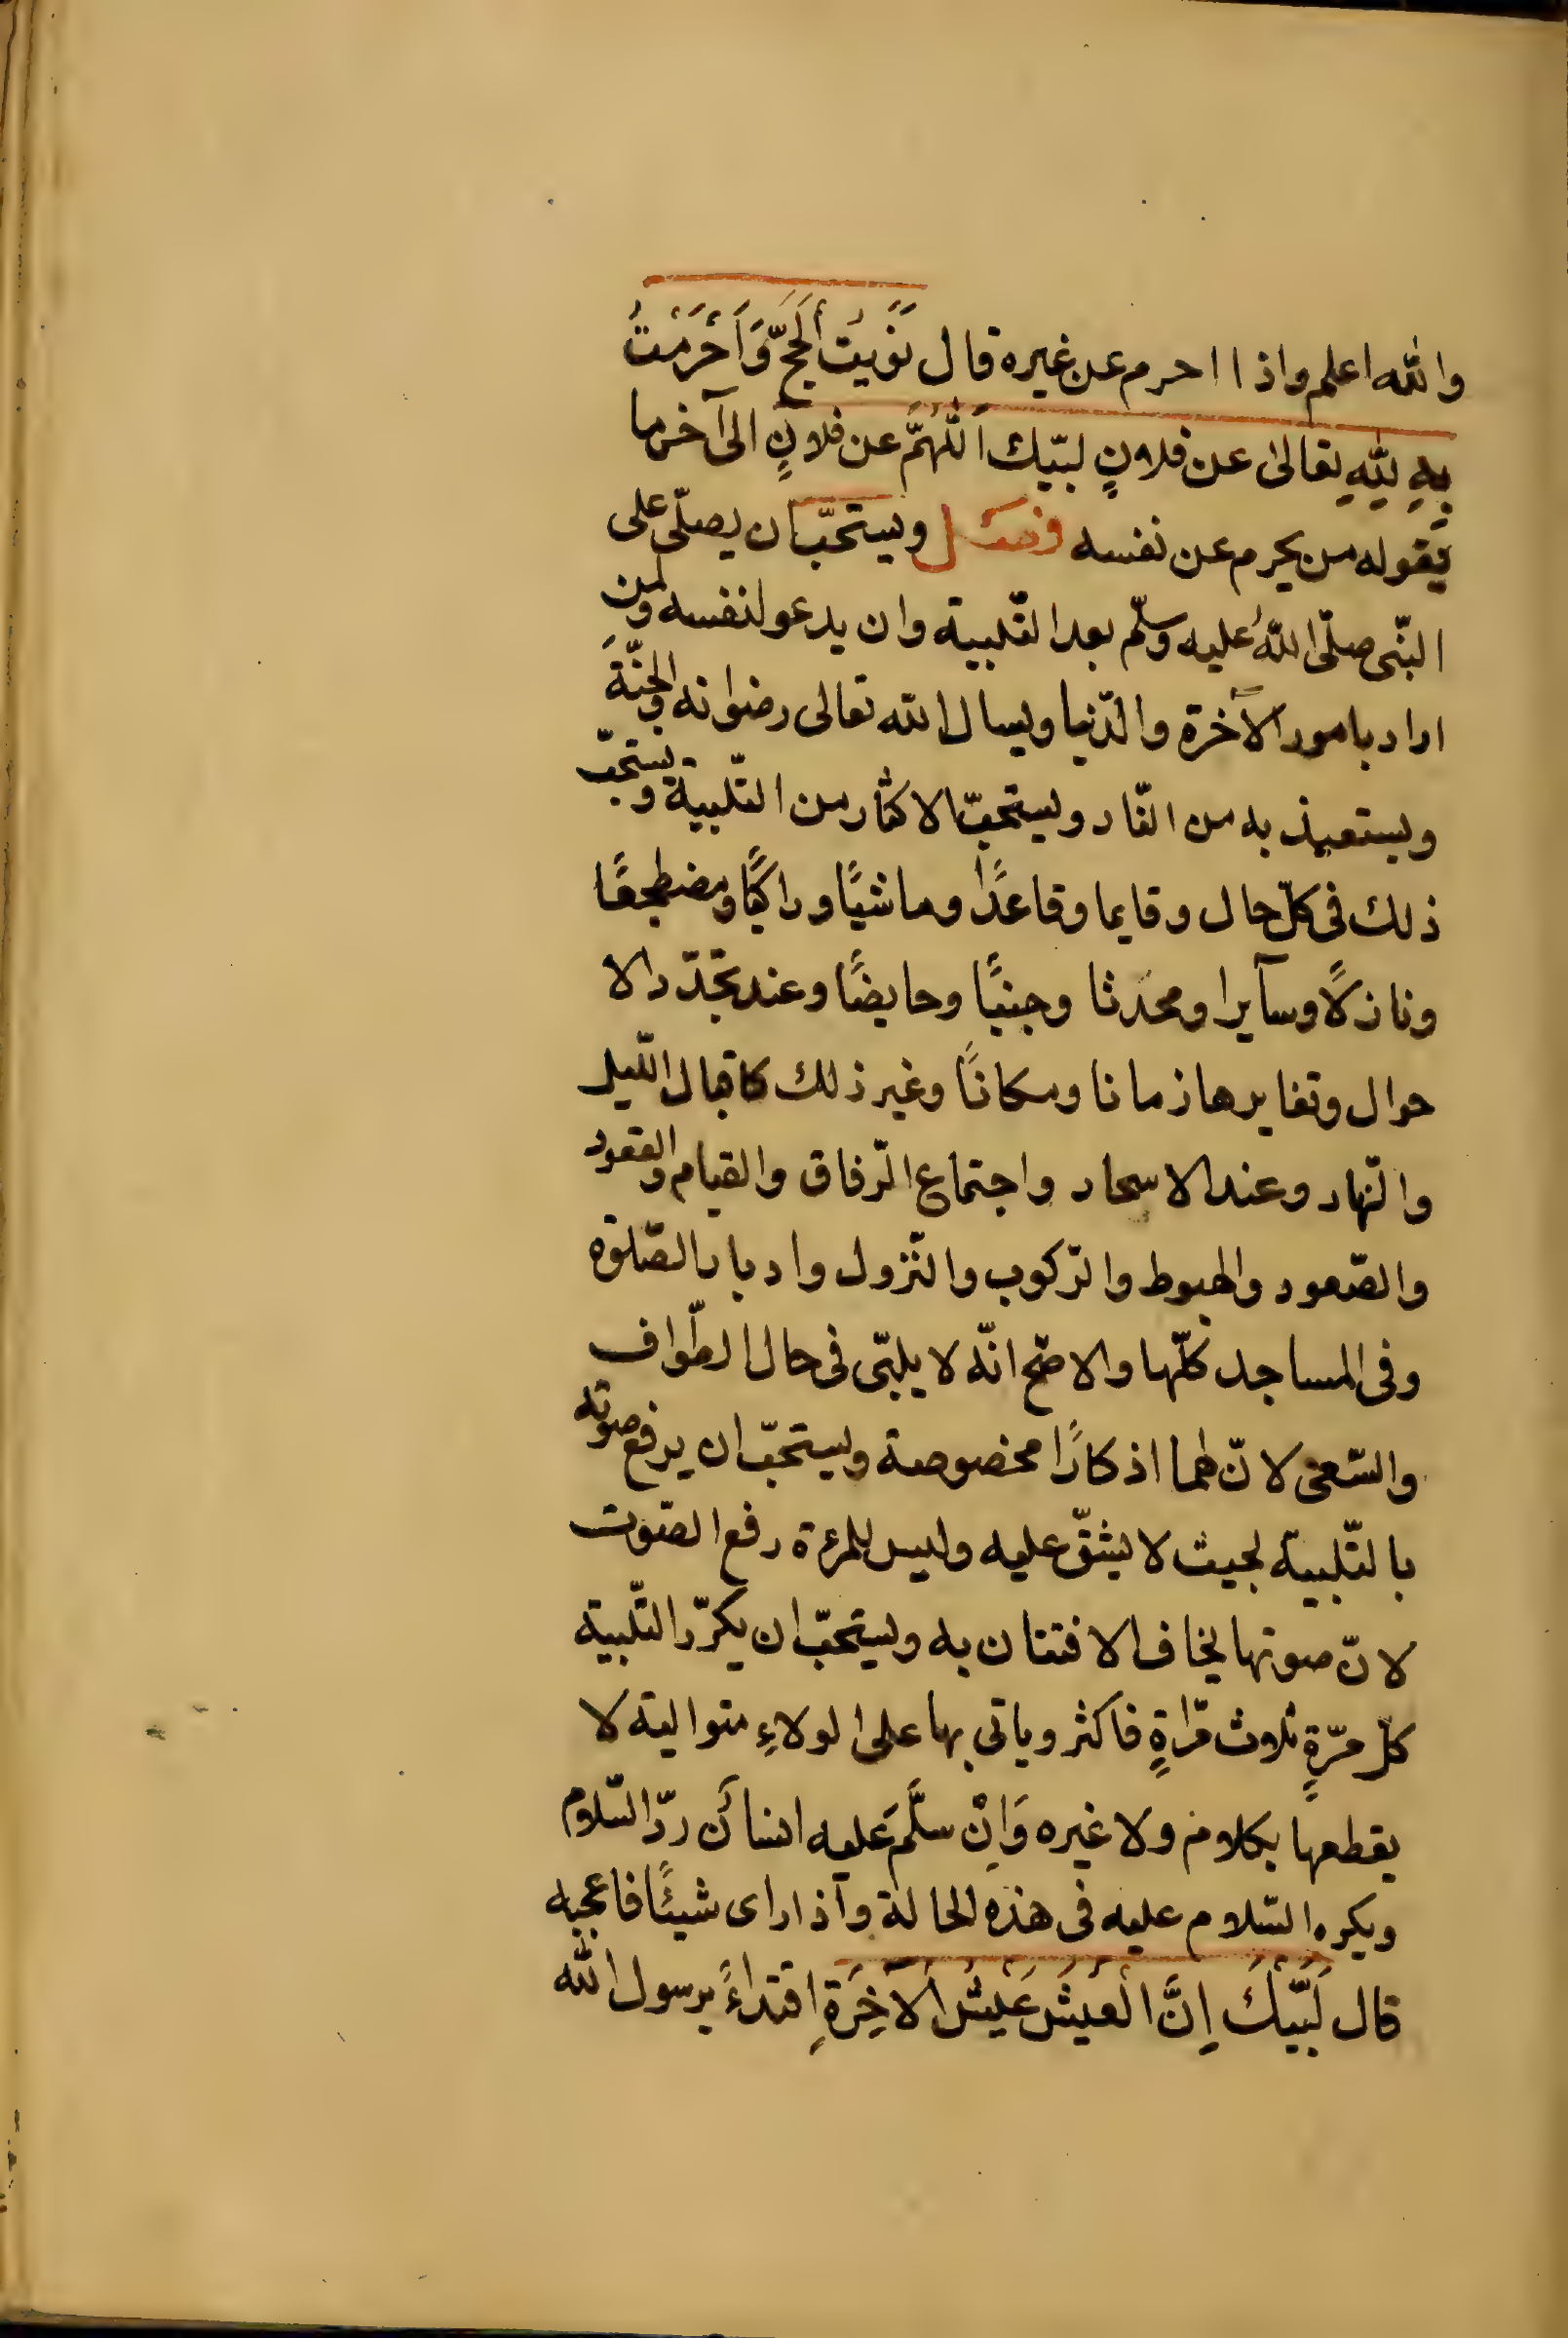 والله اعلم واذا احرم عن غيره قال نَوَيْتُ الْحَجَّ وَاَحْرَمْتُ
بِهِ لِلّٰهِ تعالىٰ عن فلانٍ لبّيك اَللّٰهُمَّ عن فلانٍ الى آخر ما
يقوله من يحرم عن نفسه فصل ويستحبّ ان يصلّى على
النّبى صلّى اللّٰهُ عليه وسلّم بعد التّلبية وان يدعو لنفسه ولمن
اراد بامور الآخرة والدّنيا ويسال الله تعالى رضوانه والجنّةَ
ويستعيذ به من النّار ويستحبّ الاكثار من التّلبية ويستحبّ
ذلك فى كلّ حال وقايما وقاعدًا وماشيًا وراكبًا ومضطجعًا
ونازلًا وسآيرا ومحدثا وجنبًا وحايضًا وعند تجدّد الا
حوال وتغايرها زمانا ومكانًا وغير ذلك كاقبال اللّيل
والنّهار وعند الاسحار واجتماع الرّفاق والقيام والقعود
والصّعود والهبوط والرّكوب والنّزول وادبار الصّلوة
وفى المساجد كلّها والاصّح انّه لا يلبّى فى حال الطّواف
والسّعى لانّ لهما اذكارًا مخصوصة ويستحبّ ان يرفع صوته
بالتّلبية بحيث لا يشقّ عليه وليس للمرءة رفع الصّوت
لانّ صوتها يخاف الافتتان به ويستحبّ ان يكرّر التّلبية
كلّ مرّةٍ ثلاث مّراةٍ فاكثر وياتى بها على الولاءِ متوالية لا
يقطعها بكلام ولا غيره وَاِنْ سلَّمَ عَليه انسانٌ ردّ السّلام
ويكره السّلام عليه فى هذه الحالة وآذا راى شيئًا فاعجبه
قال لَبَّيْكَ اِنَّ الْعَيْشَ عَيْشُ الْآخِرَةِ اقتداءً برسول اللّٰه